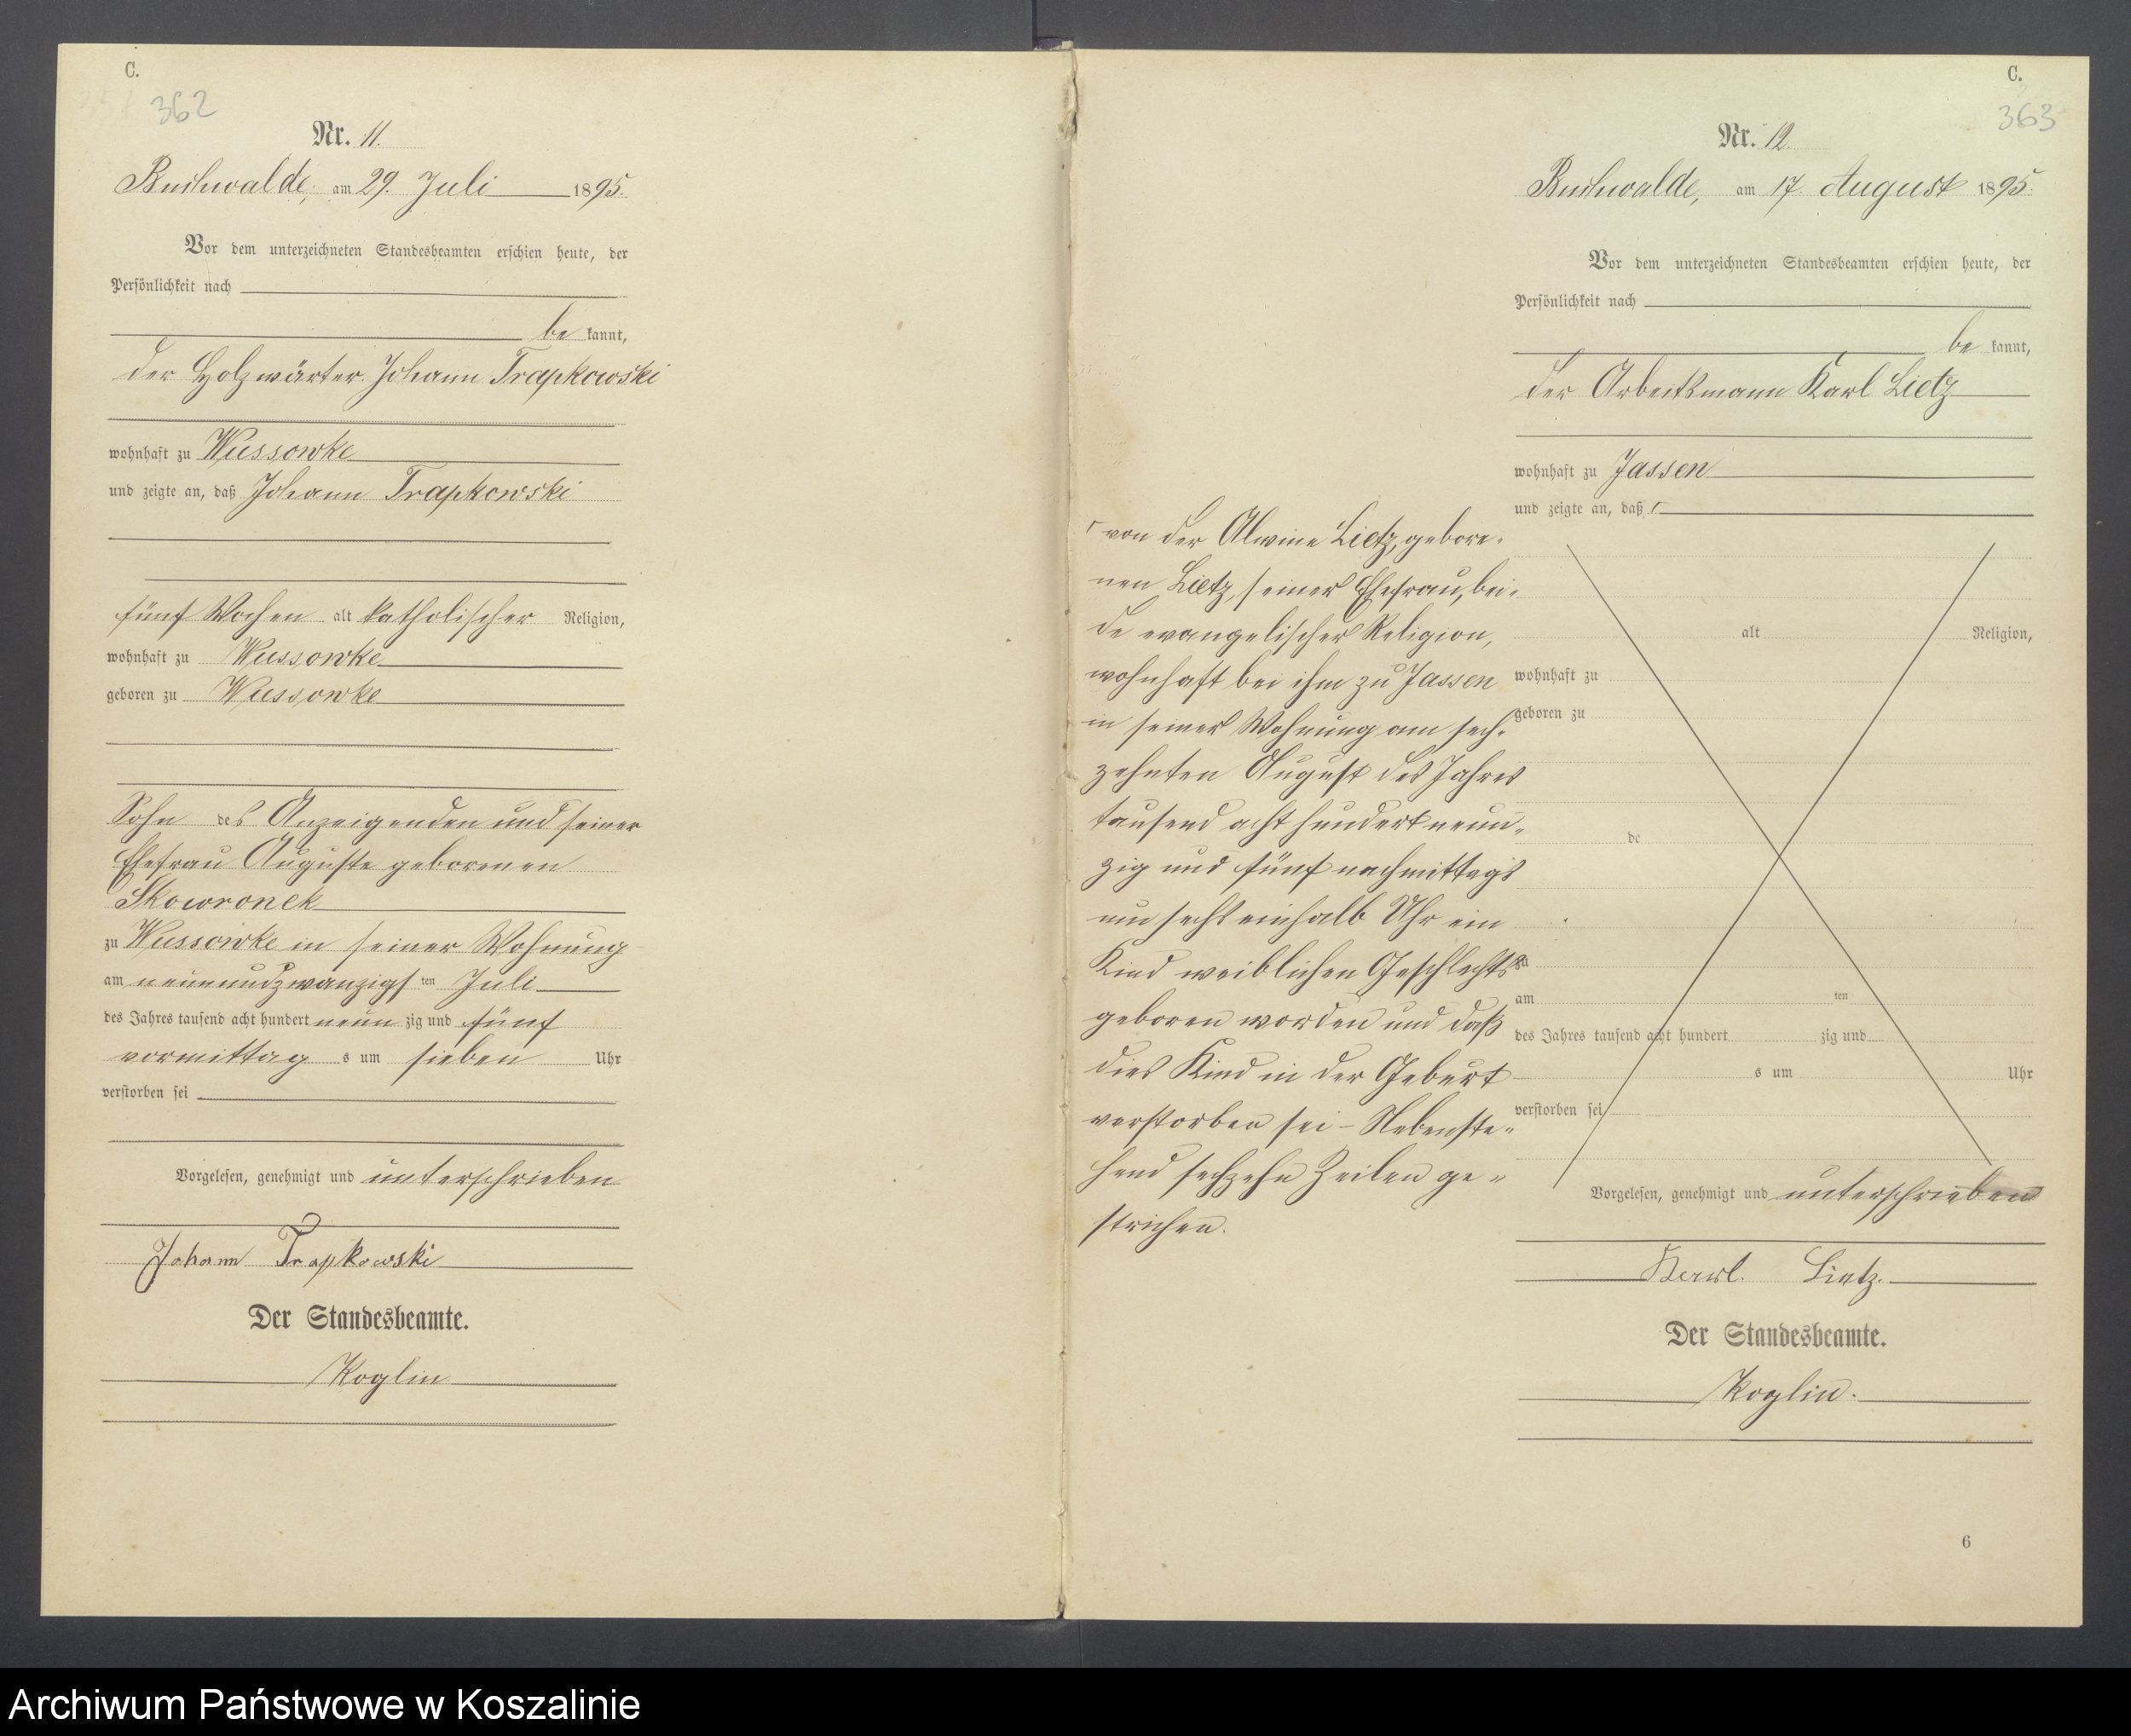 C.
362
Nr. 11.
Buchwalde, am 29. Juli 1895.
Vor dem unterzeichneten Standesbeamten erschien heute, der
Persönlichkeit nach
be kannt,
der Holzwärter Johann Trapkowski
wohnhaft zu Wussowke
und zeigte an, daß Johann Trapkowski
fünf Wochen alt katholischer Religion,
wohnhaft zu Wussowke
geboren zu Wussowke
Sohn des Anzeigenden und seiner
Ehefrau Auguste geborenen
Skowronek
zu Wussowke in seiner Wohnung
am neunundzwanzigsten Juli
des Jahres tausend acht hundert neunzig und fünf
vormittags um sieben Uhr
verstorben sei
Vorgelesen, genehmigt und unterschrieben
Johann Trapkowski
Der Standesbeamte.
Koglin
C.
363
Nr. 12.
Buchwalde, am 17. August 1895.
Vor dem unterzeichneten Standesbeamten erschien heute, der
Persönlichkeit nach
be kannt,
der Arbeitsmann Karl Lietz
wohnhaft zu Jassen
und zeigte an, daß ┌
┌ von der Alwine Lietz, gebore-
nen Lietz, seiner Ehefrau, bei-
de evangelischer Religion,
wohnhaft bei ihm zu Jassen
in seiner Wohnung am sech-
zehnten August des Jahres
tausend acht hundert neun-
zig und fünf nachmittags
um sechseinhalb Uhr ein
Kind weiblichen Geschlechts
geboren worden und daß
dies Kind in der Geburt
verstorben sei – Nebenste-
hend sechzehn Zeilen ge-
strichen.
alt Religion,
wohnhaft zu
geboren zu
de
zu
am ten
des Jahres tausend acht hundert zig und
s um Uhr
verstorben sei
Vorgelesen, genehmigt und unterschrieben
Karl. Lietz.
Der Standesbeamte.
Koglin.
6
Archiwum Państwowe w Koszalinie